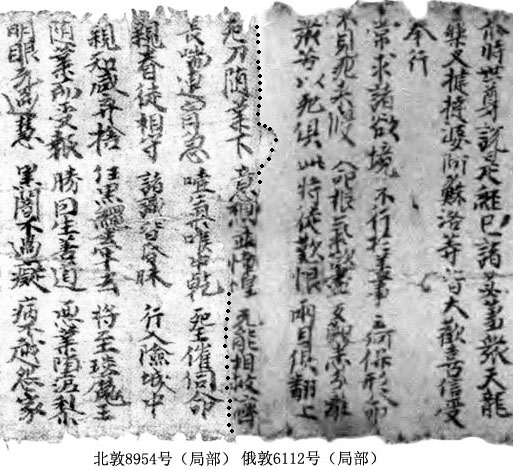 尒時世尊說是經已諸苾芻衆天龍
藥叉揵闥婆阿蘇洛等皆大歡喜信受
奉行
常求諸欲境 不行於善事 云何保形命
不見死來侵 命根氣欲盡 支節悉分離
衆苦与死俱 此時徒歎恨 兩目俱翻上
死刀随業下 意想並慞惶 无能相救濟
長喘連胷急 噎氣喉中乾 死王催伺命
親眷徒相守 諸識皆昏昧 行入險城中
親知咸弃捨 任黑繩牽去 將至琰魔王
随業而受報 勝因生善道 惡業墮泥犁
明眼无過慧 黑闇不過癡 病不越怨家
北敦8954号（局部） 俄敦6112号（局部）